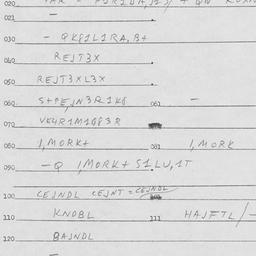 020
021 -
030 - QK81L1RA, B+
040 REJT3X
050 REJT3XL3X
060 S+PE,JN3R1K8 061 -
070 VE4R1M1G83R
080 1,MORK+ 081 1,MORK
090 -Q 1MORK+ S1LU,1T
100 CEJNDL CEJNT = CEJNDL
110 KNOBL 111 HAJFTL/-
120 BAJNDL
-